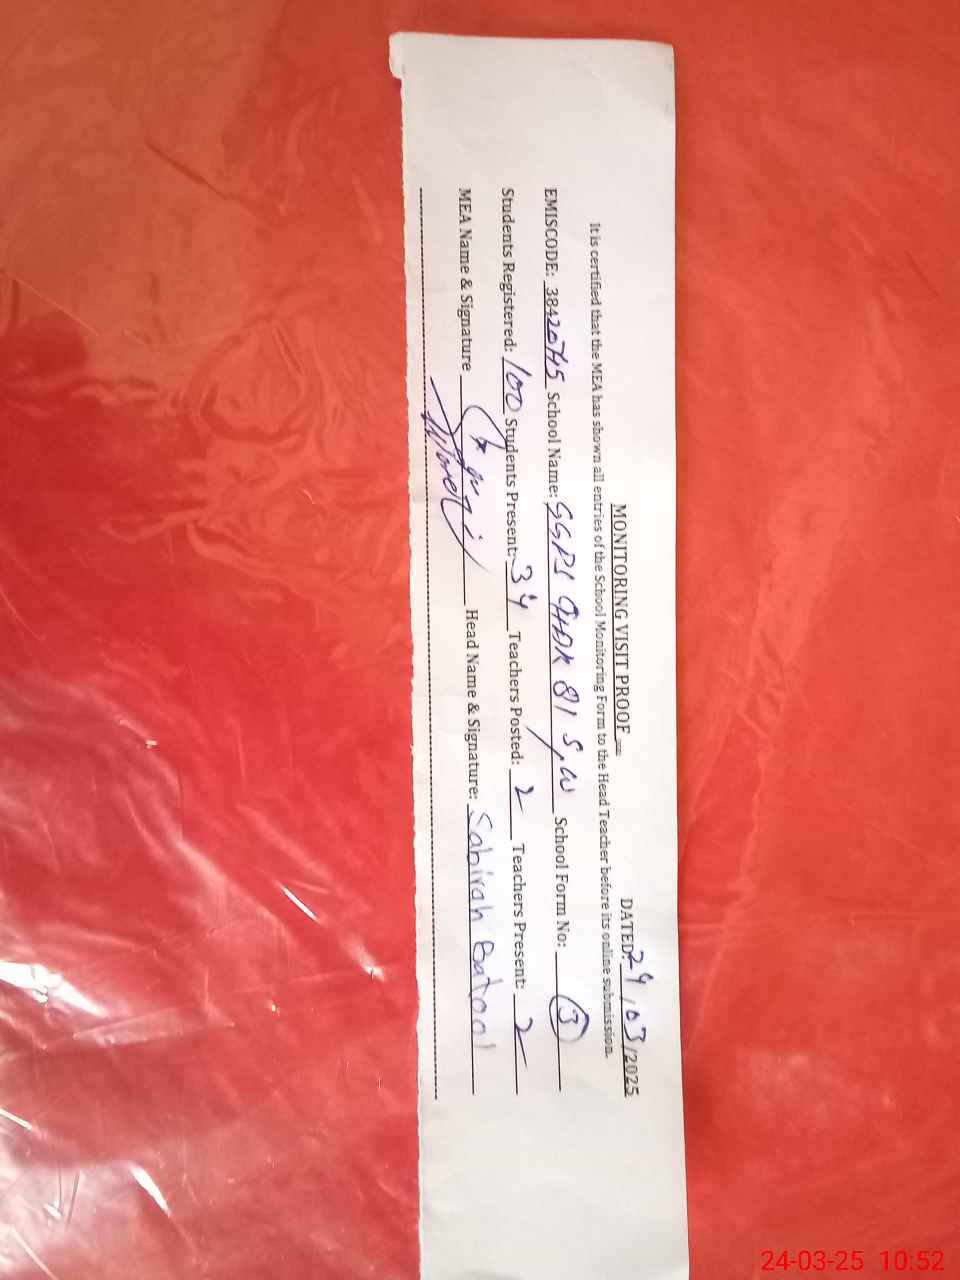 MONITORING VISIT PROOF
DATED: 24/03/2025
It is certified that the MEA has shown all entries of the School Monitoring Form to the Head Teacher before its online submission.
EMISCODE: 38420745 School Name: GGPS 9HDK 81 S,W School Form No: 3
Students Registered: 100 Students Present: 34 Teachers Posted: 2 Teachers Present: 2
MEA Name & Signature Head Name & Signature: Sabirah Batool
24-03-25 10:52